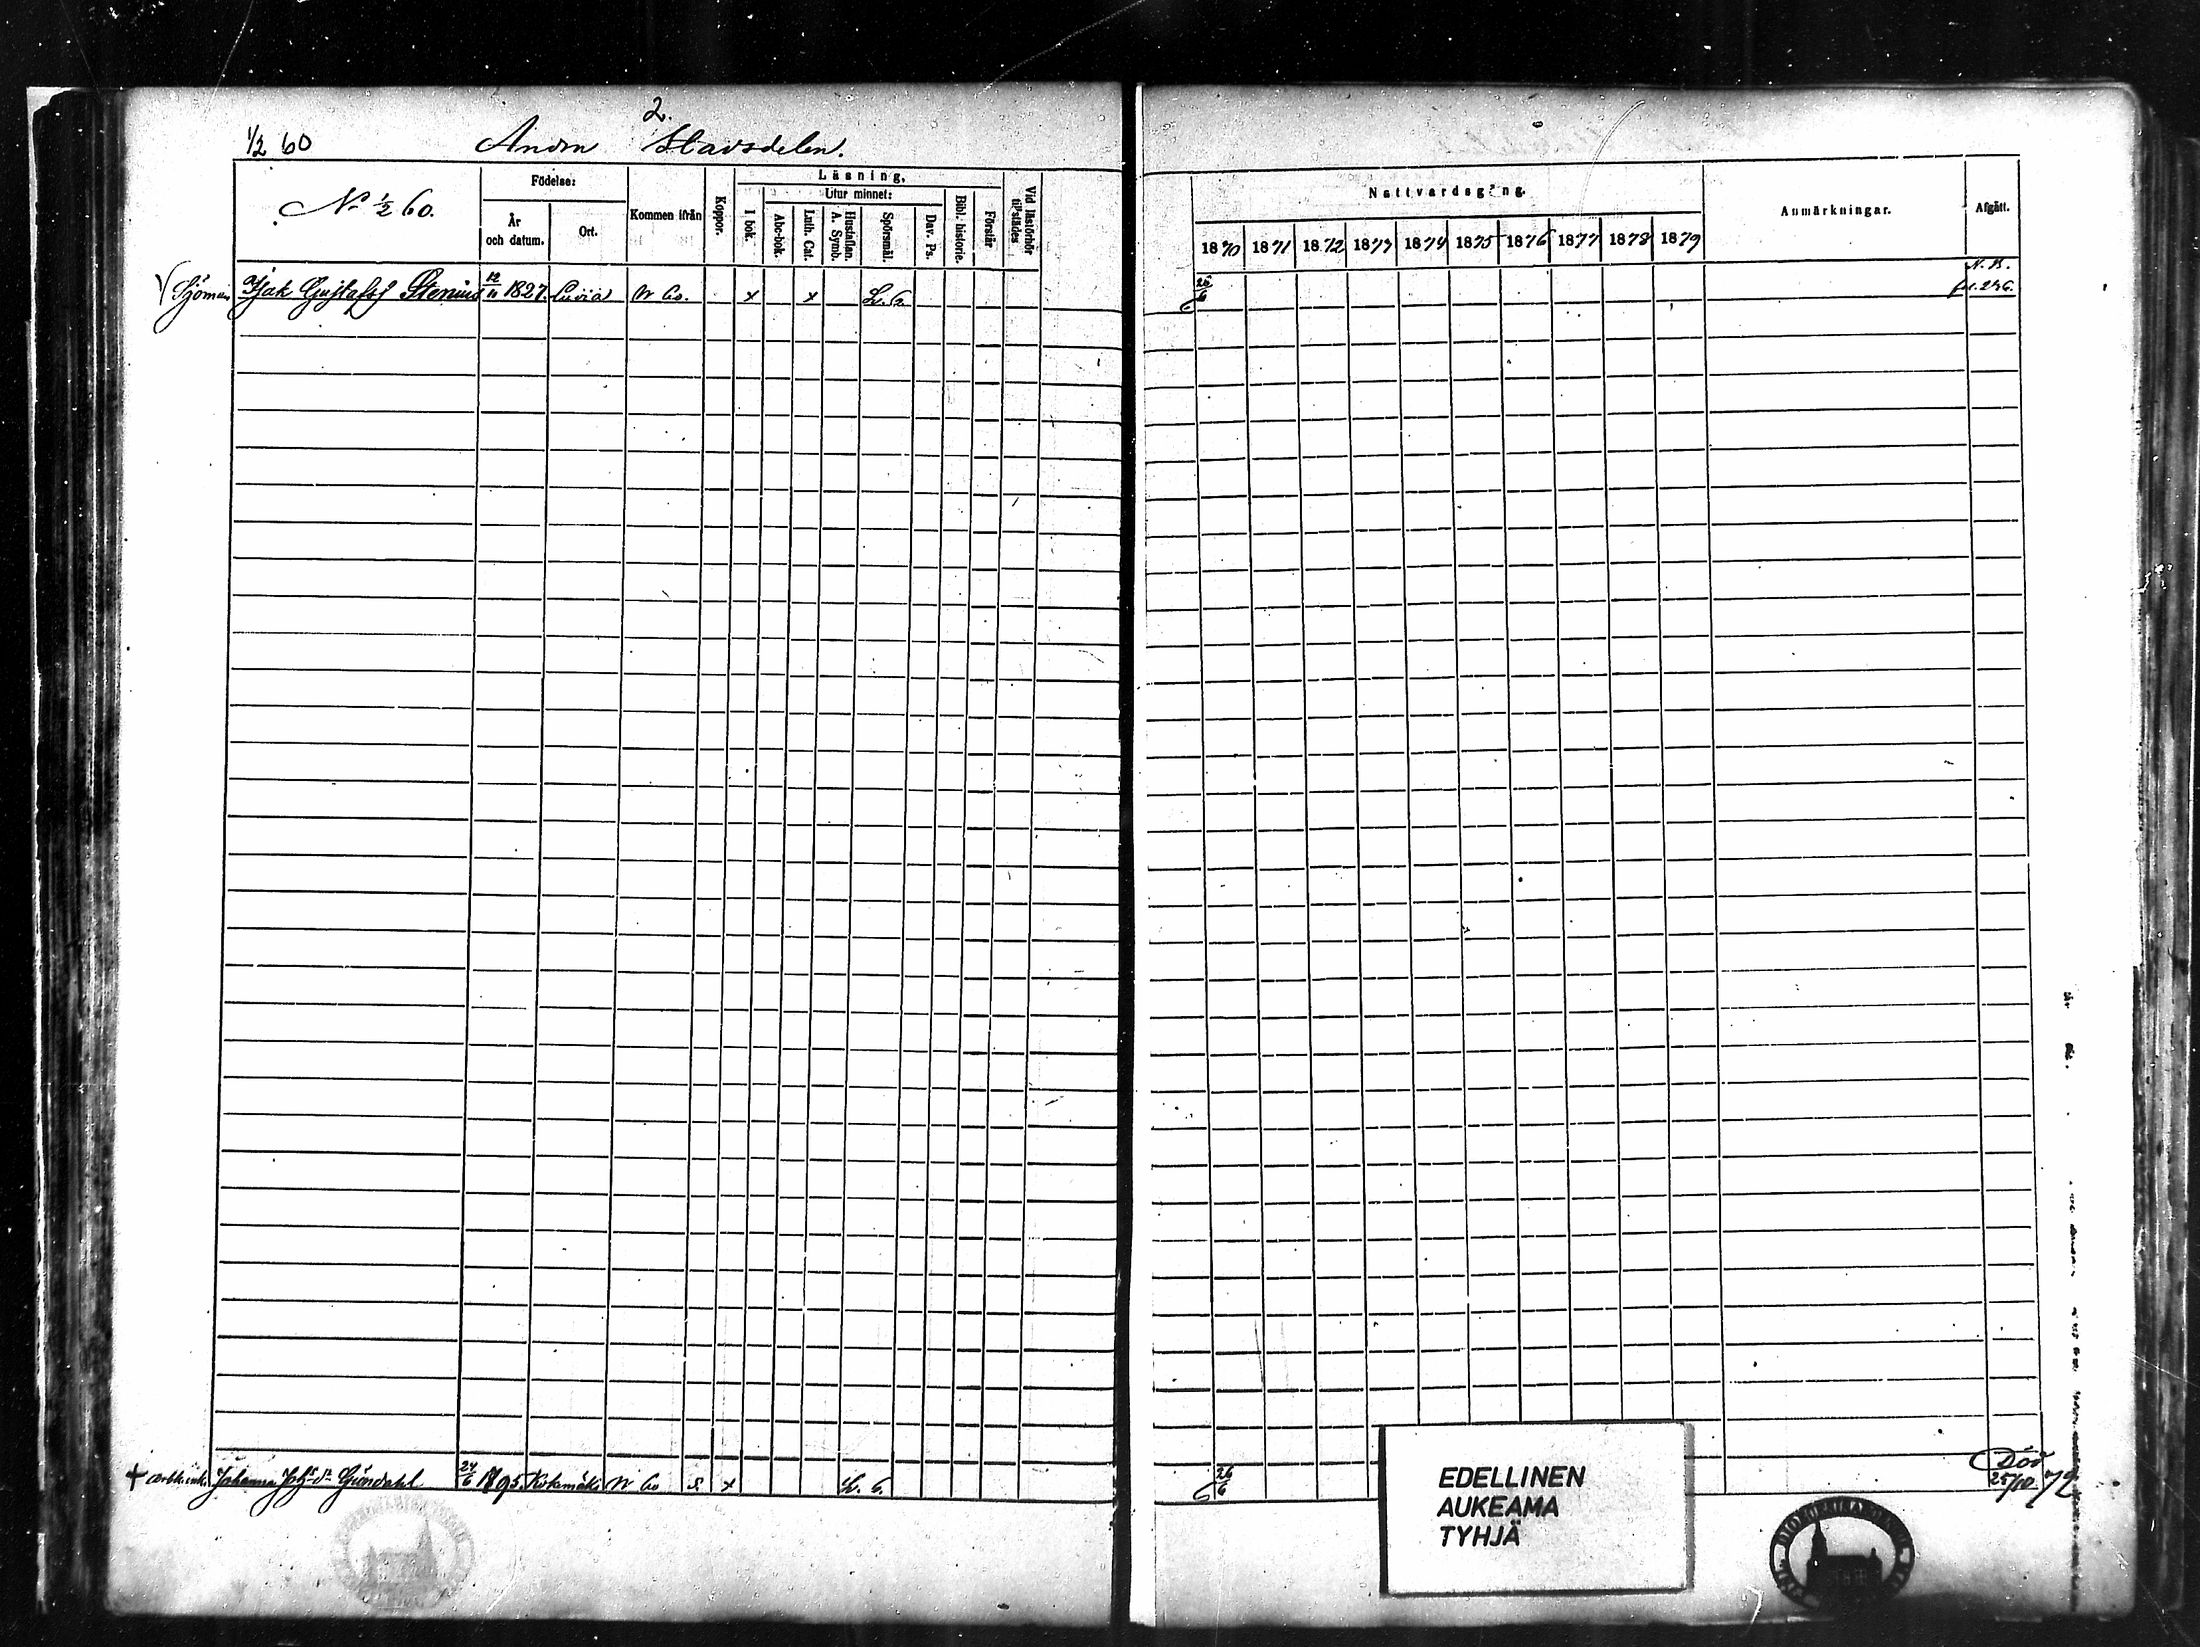 2.
½ 60 Andra Stadsdelen.
No ½ 60.
Födelse:
År och datum.
Ort.
Kommen ifrån
Koppor.
Läsning.
I bok.
Utur minnet:
Abc-bok.
Luth. Cat.
Hustaflan. A. Symb.
Spörsmål.
Dav. Ps.
Bibl. historie.
Förstår
Vid läsförhör tillstädes
Nattvardsgång.
1870 1871 1872 1873 1874 1875 1876 1877 1878 1879
Anmärkningar.
Afgått.
Sjöman Isak Gustafss Stenius 12/11 1827. Luvia N 60. x x 26/6 N. B.
fol. 246.
+ Johanna 24/6 1795. N 60 s x 26/6 Död
25/10 72
EDELLINEN
AUKEAMA
TYHJÄ